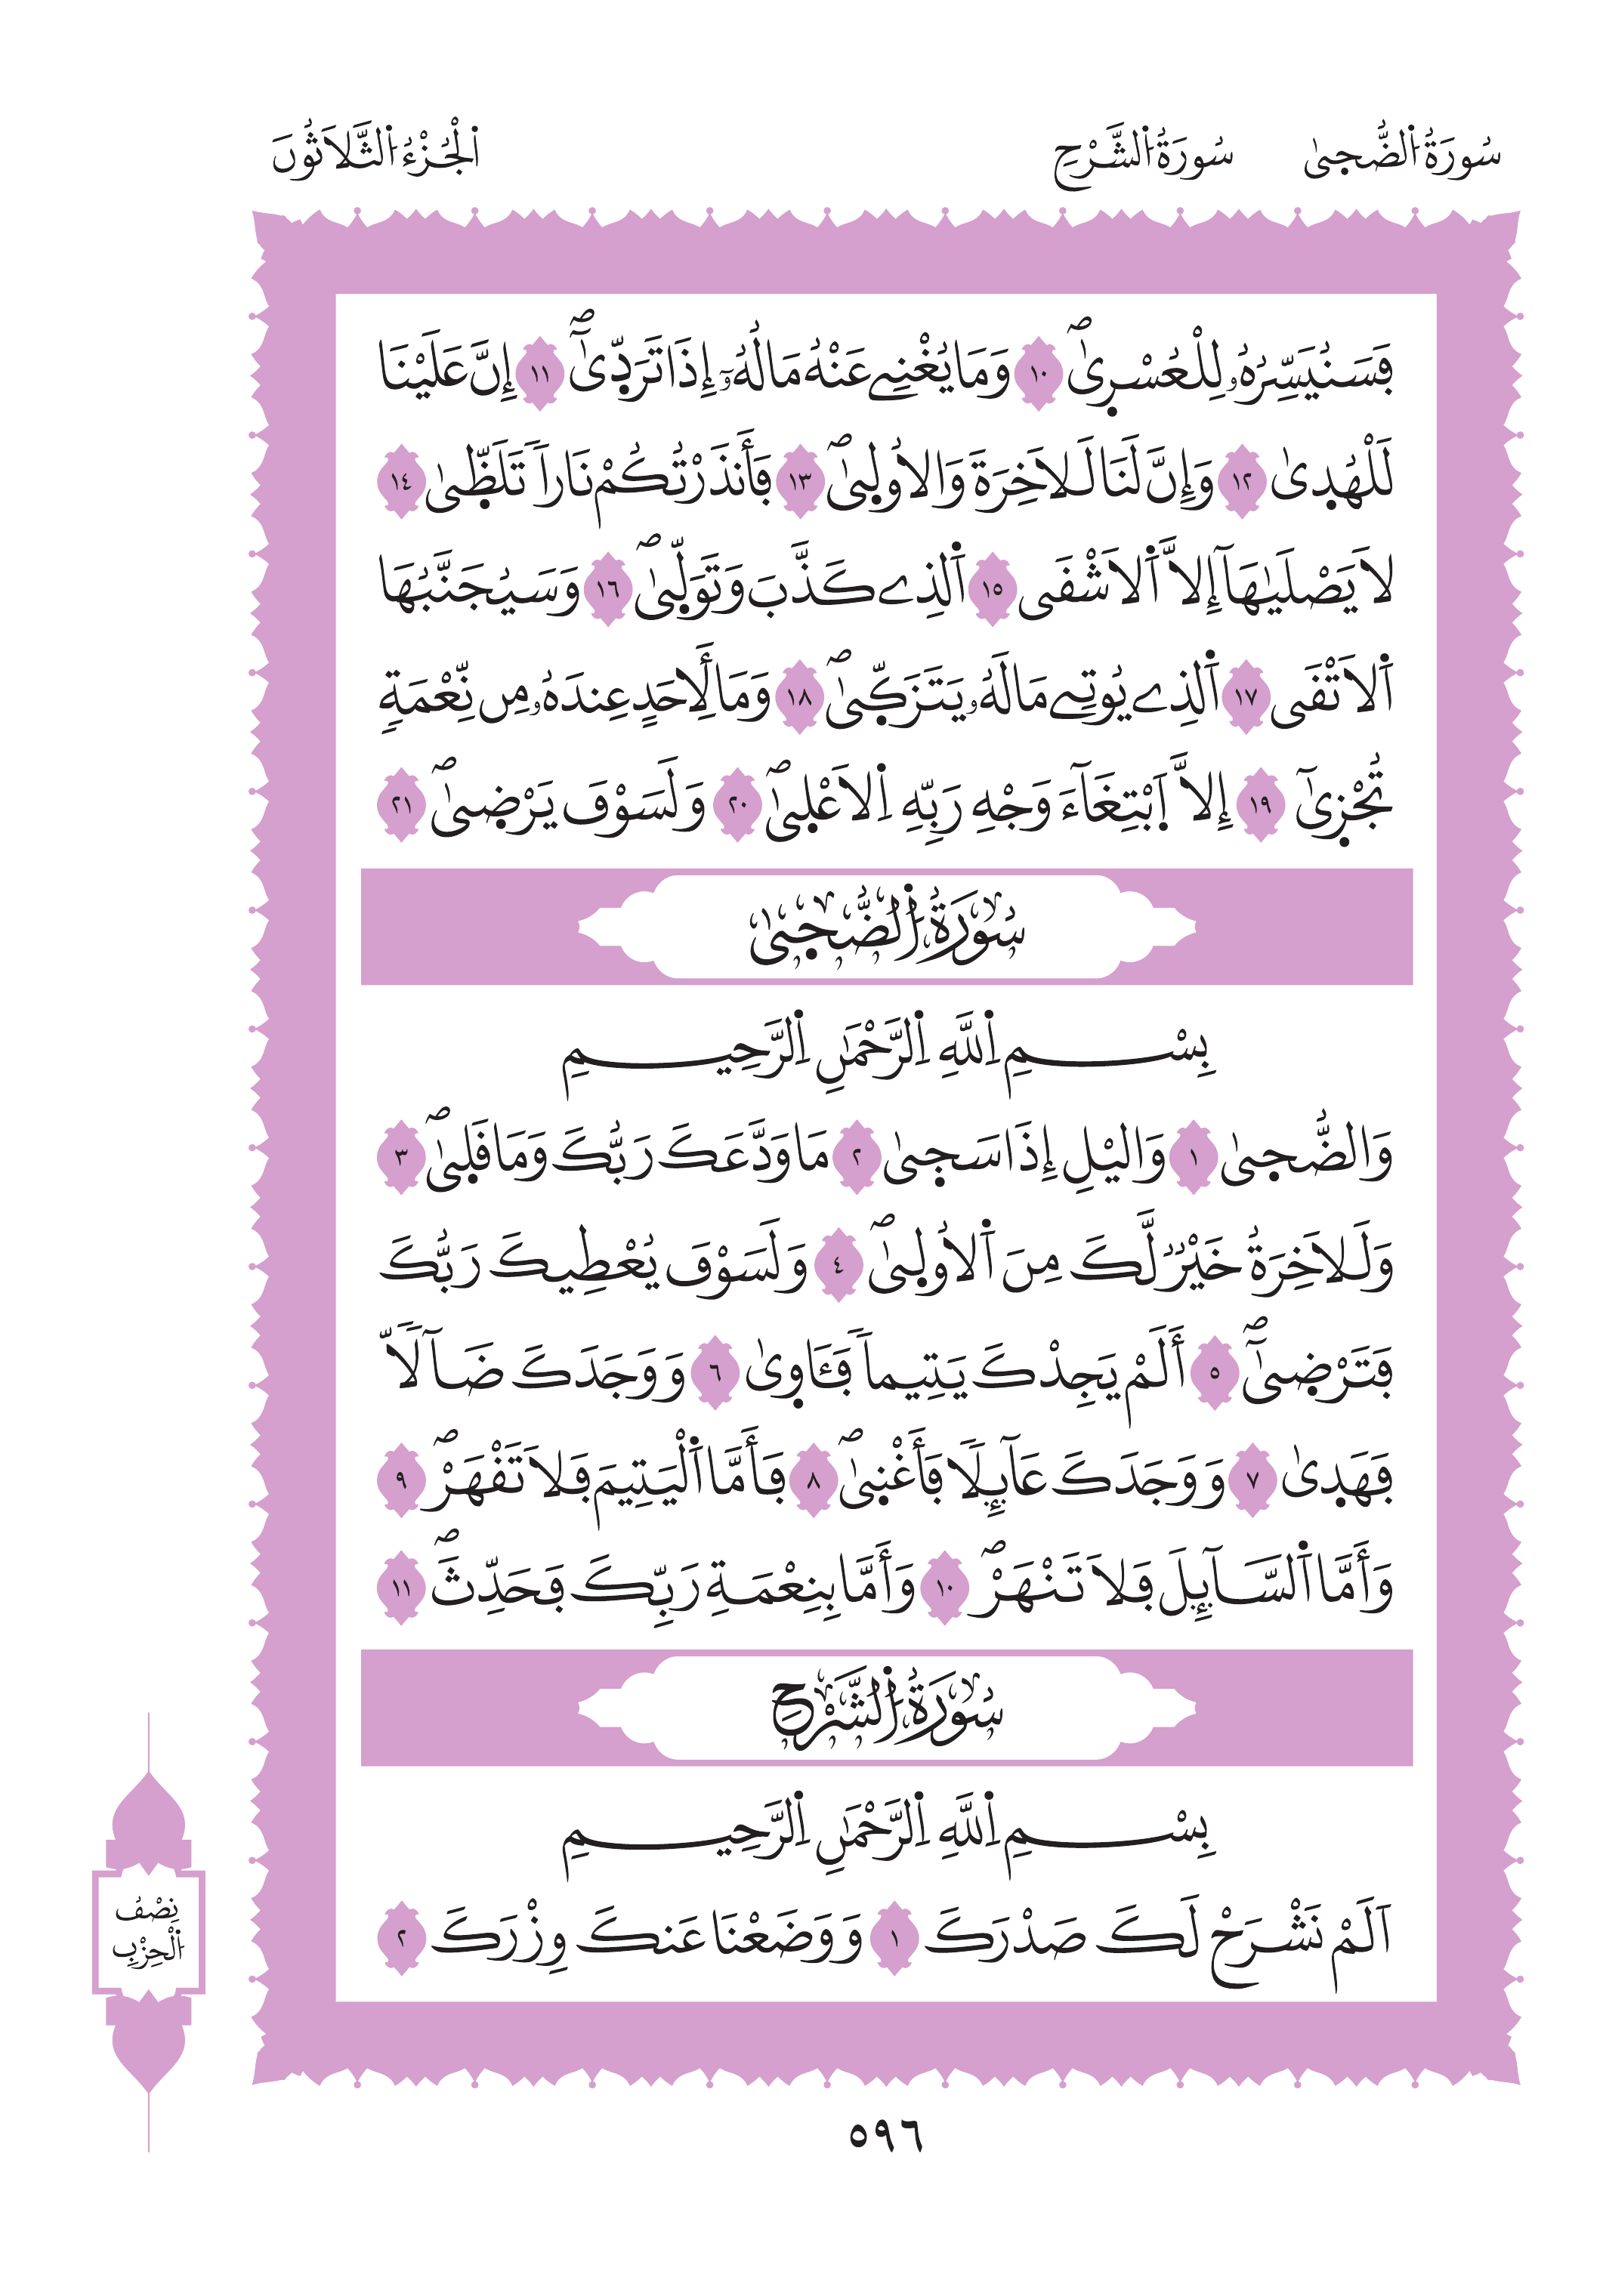 سُورَةُ اُ۬لضُّح۪يٰ سُورَةُ اُ۬لشَّرْحِ اَ۬لْجُزْءُ اُ۬لثَّلَاثُونَ
فَسَنُيَسِّرُهُۥ لِلْعُسْر۪يٰۖ ١٠ وَمَا يُغْنِے عَنْهُ مَالُهُۥٓ إِذَا تَرَدّ۪يٰٓۖ ١١ إِنَّ عَلَيْنَا
لَلْهُد۪يٰ ١٢ وَإِنَّ لَنَا لَلَاخِرَةَ وَالُاول۪يٰۖ ١٣ فَأَنذَرْتُكُمْ نَاراٗ تَلَظّ۪يٰ ١٤
لَا يَصْلَيٰهَآ إِلَّا اَ۬لَاشْقَي ١٥ اَ۬لذِے كَذَّبَ وَتَوَلّ۪يٰۖ ١٦ وَسَيُجَنَّبُهَا
اَ۬لَاتْقَي ١٧ اَ۬لذِے يُوتِے مَالَهُۥ يَتَزَكّ۪يٰۖ ١٨ وَمَا لِأَحَدٍ عِندَهُۥ مِن نِّعْمَةٖ
تُجْز۪يٰٓ ١٩ إِلَّا اَ۪بْتِغَآءَ وَجْهِ رَبِّهِ اِ۬لَاعْل۪يٰۖ ٢٠ وَلَسَوْفَ يَرْض۪يٰۖ ٢١
سُورَةُ اُ۬لضُّح۪يٰ
بِسْمِ اِ۬للَّهِ اِ۬لرَّحْمَٰنِ اِ۬لرَّحِيمِ
وَالضُّح۪يٰ ١ وَاليْلِ إِذَا سَج۪يٰ ٢ مَا وَدَّعَكَ رَبُّكَ وَمَا قَل۪يٰۖ ٣
وَلَلَاخِرَةُ خَيْرٞ لَّكَ مِنَ اَ۬لُاول۪يٰۖ ٤ وَلَسَوْفَ يُعْطِيكَ رَبُّكَ
فَتَرْض۪يٰٓۖ ٥ أَلَمْ يَجِدْكَ يَتِيماٗ فَـَٔاو۪يٰ ٦ وَوَجَدَكَ ضَآلّاٗ
فَهَد۪يٰ ٧ وَوَجَدَكَ عَآئِلاٗ فَأَغْن۪يٰۖ ٨ فَأَمَّا اَ۬لْيَتِيمَ فَلَا تَقْهَرْۖ ٩
وَأَمَّا اَ۬لسَّآئِلَ فَلَا تَنْهَرْۖ ١٠ وَأَمَّا بِنِعْمَةِ رَبِّكَ فَحَدِّثْۖ ١١
سُورَةُ اُ۬لشَّرْحِ
بِسْمِ اِ۬للَّهِ اِ۬لرَّحْمَٰنِ اِ۬لرَّحِيمِ
اَلَمْ نَشْرَحْ لَكَ صَدْرَكَ ١ وَوَضَعْنَا عَنكَ وِزْرَكَ ٢
نِصْفُ
اُ۬لْحِزْبِ
٥٩٦